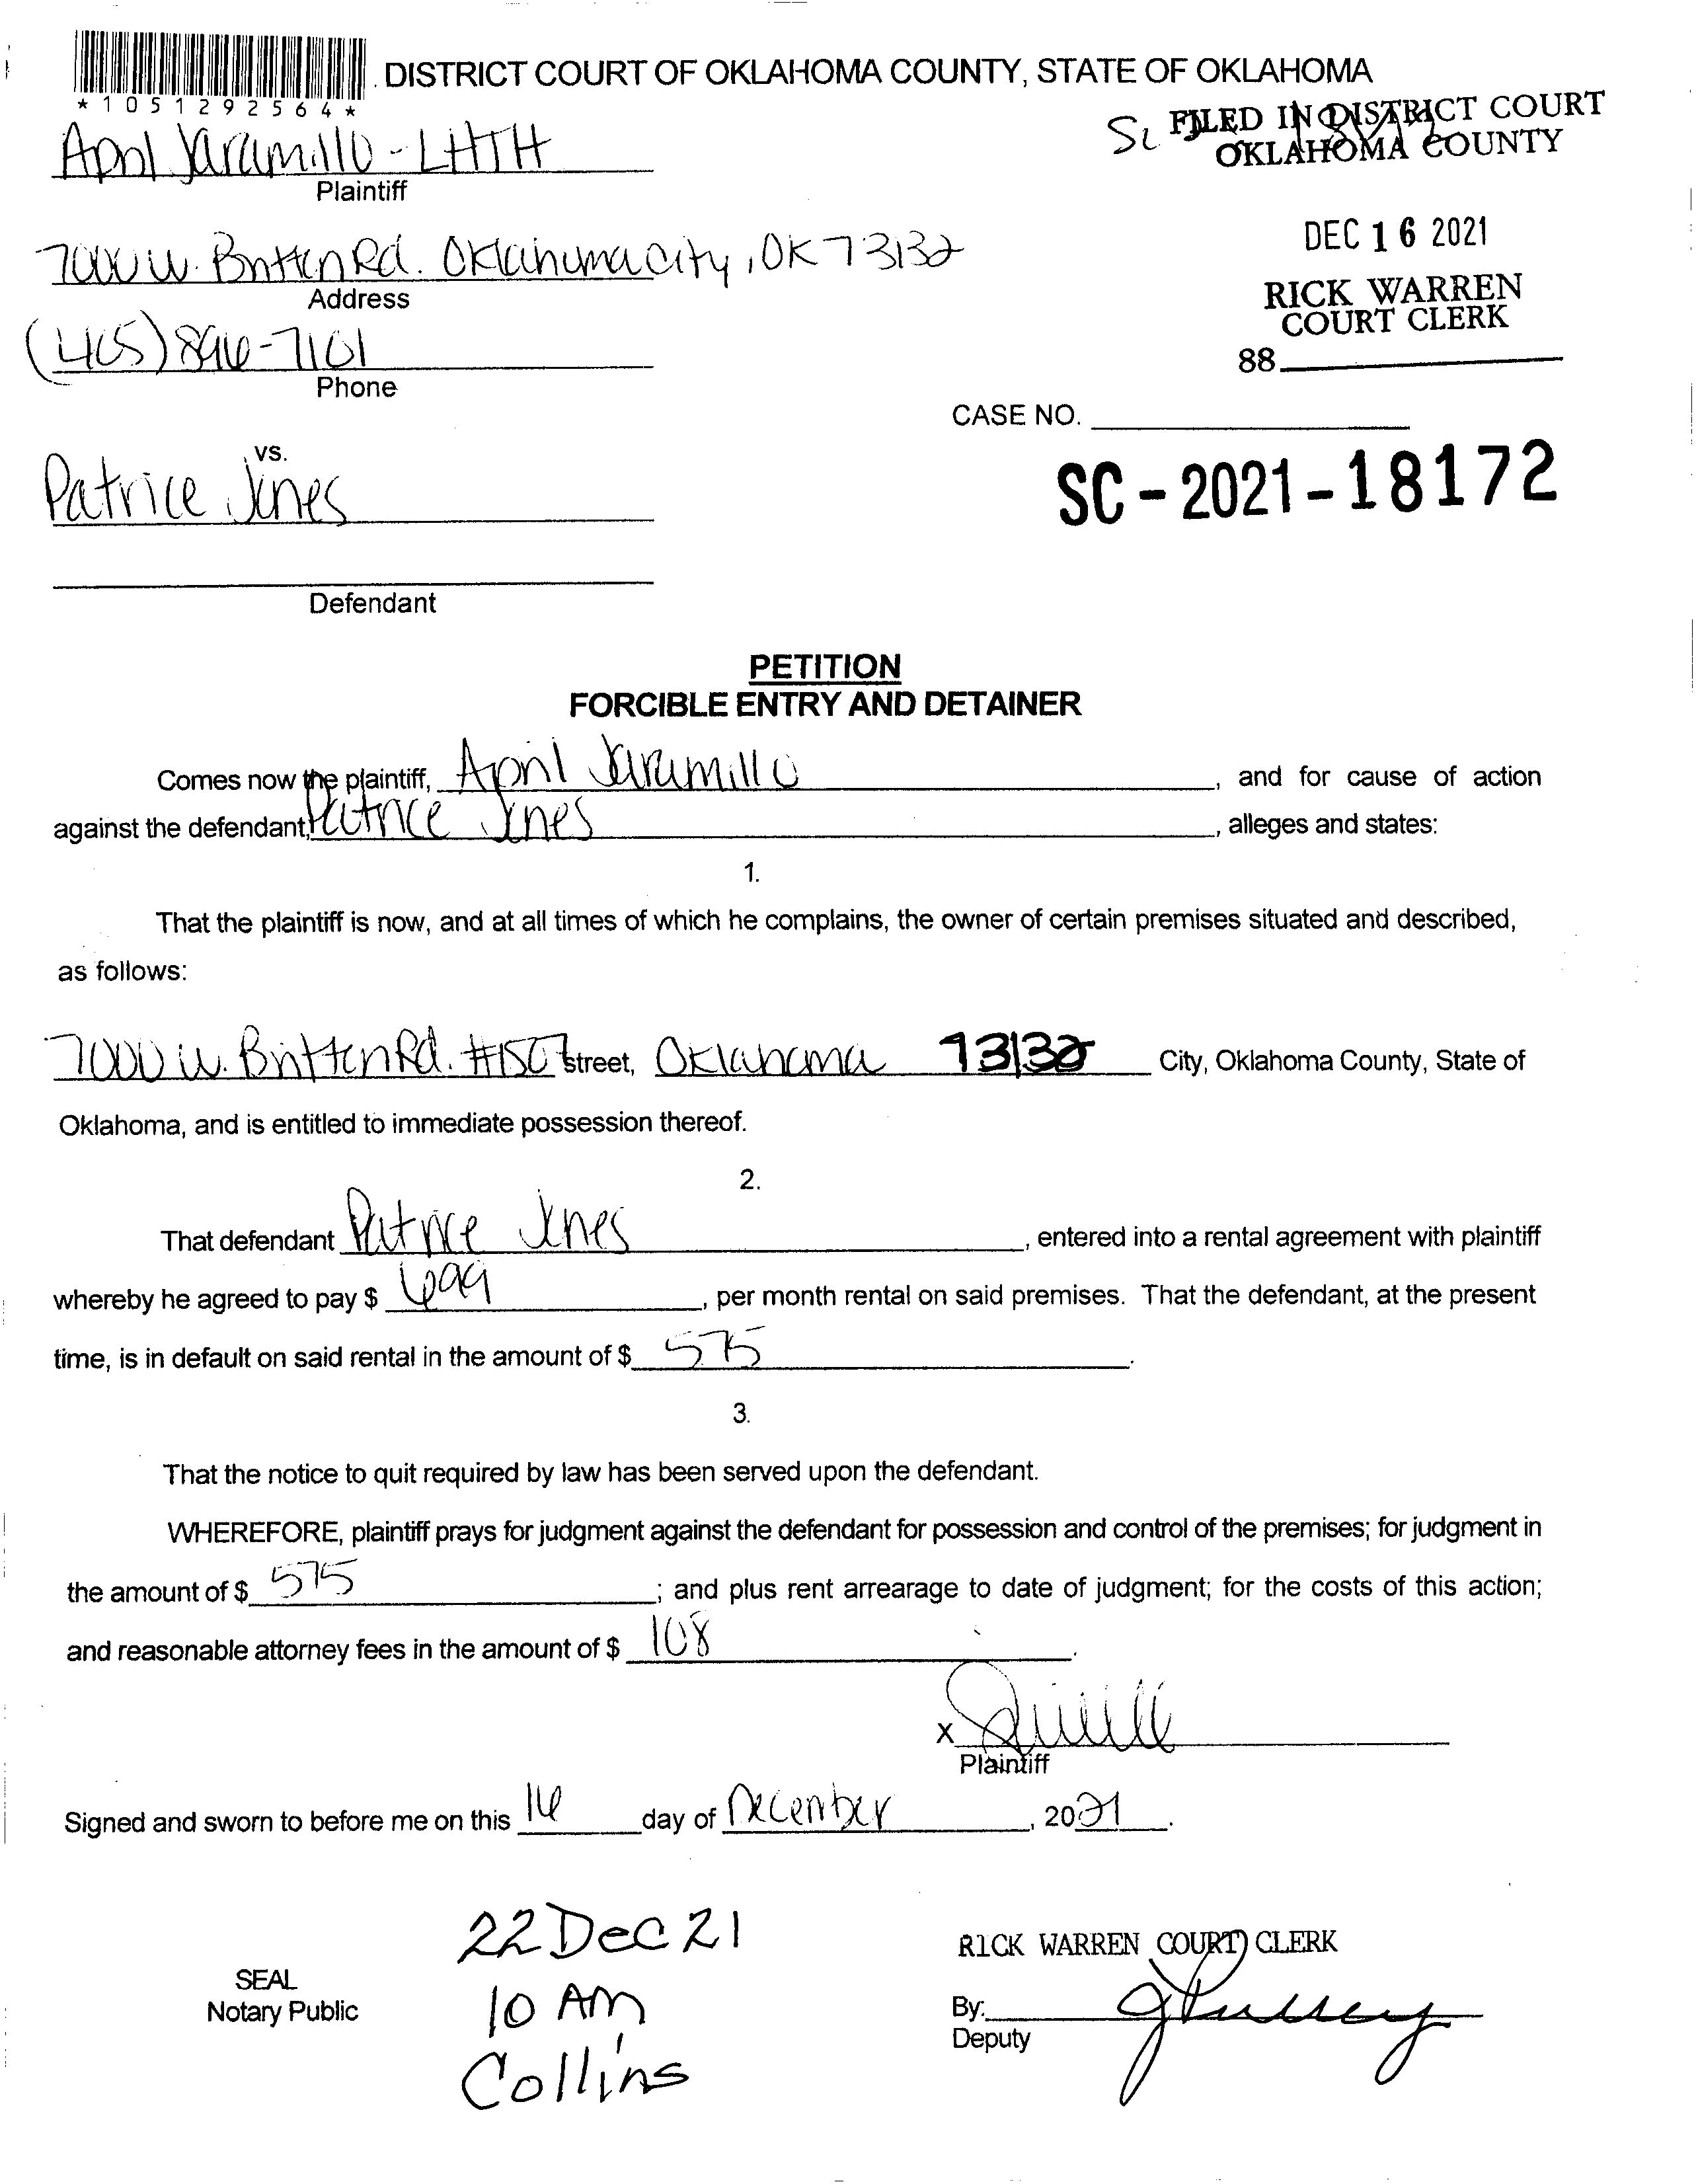 DISTRICT COURT OF OKLAHOMA COUNTY, STATE OF OKLAHOMA
*1051292564*
FILED IN DISTRICT COURT
OKLAHOMA COUNTY
April Jaramillo - LHTH
Plaintiff
DEC 16 2021
7000 W. Britton Rd. Oklahoma City, OK 73132
Address
RICK WARREN
COURT CLERK
(405) 896-7101
88
Phone
CASE NO.
vs.
Patrice Jones
SC-2021-18172
Defendant
PETITION
FORCIBLE ENTRY AND DETAINER
Comes now the plaintiff, April Jaramillo, and for cause of action
against the defendant, Patrice Jones, alleges and states:
1.
That the plaintiff is now, and at all times of which he complains, the owner of certain premises situated and described,
as follows:
7000 W. Britton Rd. #1507 street, Oklahoma 73132 City, Oklahoma County, State of
Oklahoma, and is entitled to immediate possession thereof.
2.
That defendant Patrice Jones, entered into a rental agreement with plaintiff
whereby he agreed to pay $ 699, per month rental on said premises. That the defendant, at the present
time, is in default on said rental in the amount of $ 575.
3.
That the notice to quit required by law has been served upon the defendant.
WHEREFORE, plaintiff prays for judgment against the defendant for possession and control of the premises; for judgment in
the amount of $ 575; and plus rent arrearage to date of judgment; for the costs of this action;
and reasonable attorney fees in the amount of $ 108.
X
Plaintiff
Signed and sworn to before me on this 16 day of December, 2021.
22 Dec 21
RICK WARREN COURT CLERK
SEAL
Notary Public
10 AM
By:
Deputy
Collins